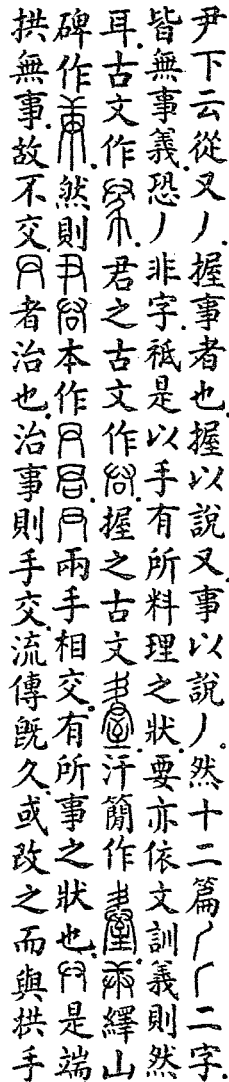 尹下云從又丿握事者也握以說又事以說丿然十二篇二字
皆無事義恐丿非字祗是以手有所料理之狀要亦依文訓義則然
耳古文作君之古文作握之古文汗簡作繹山
碑作然則本作兩手相交有所事之狀也是端
拱無事故不交者治也治事則手交流傳旣久或改之而與拱手